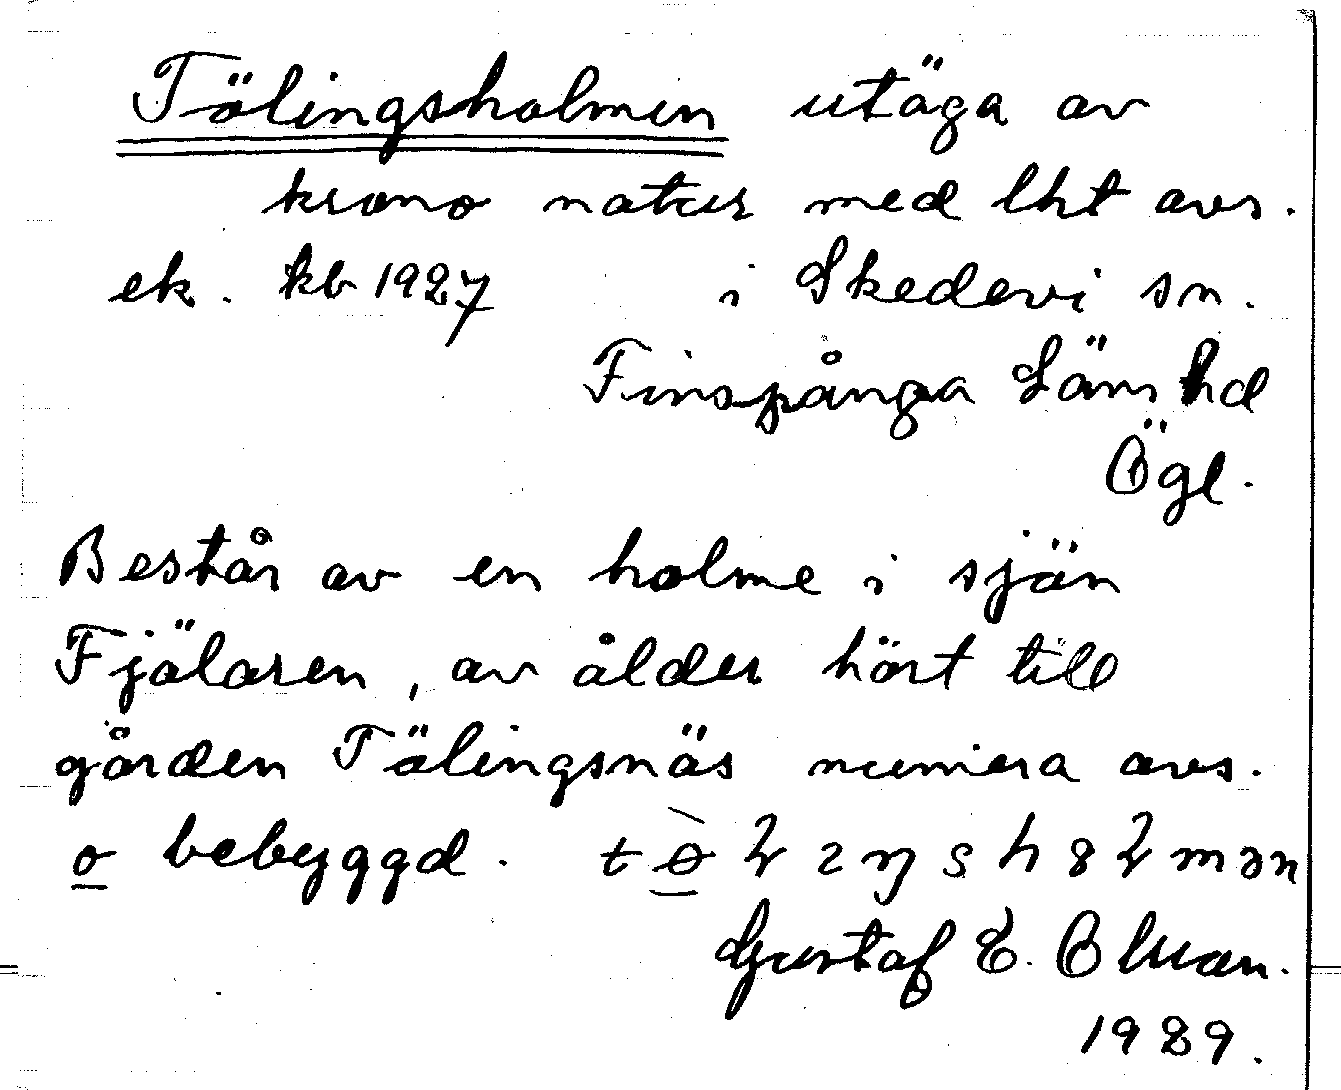 Tölingsholmen utäga av
krono natur med lht avs.
ek. kb 1927 i Skedevi sn.
Finspånga Läns hd
Ögl.
Består av en holme i sjön
Fjälaren, av ålder hört till
gården Tölingsnäs numera avs.
o bebyggd.
Gustaf E. Ohman.
1929.